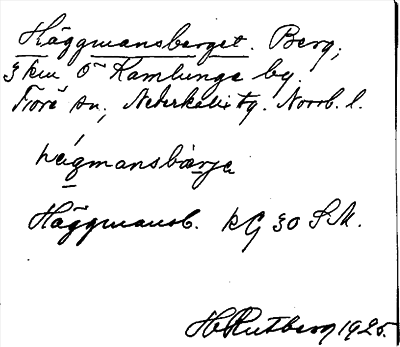 Häggmansberget. Berg,
3 km Ö Kamlunge by.
Töre sn, Nederkalix tg. Norrb. l.
hägmansbærje
Häggmansb. KG 30 S.M.
HRutberg 1925.